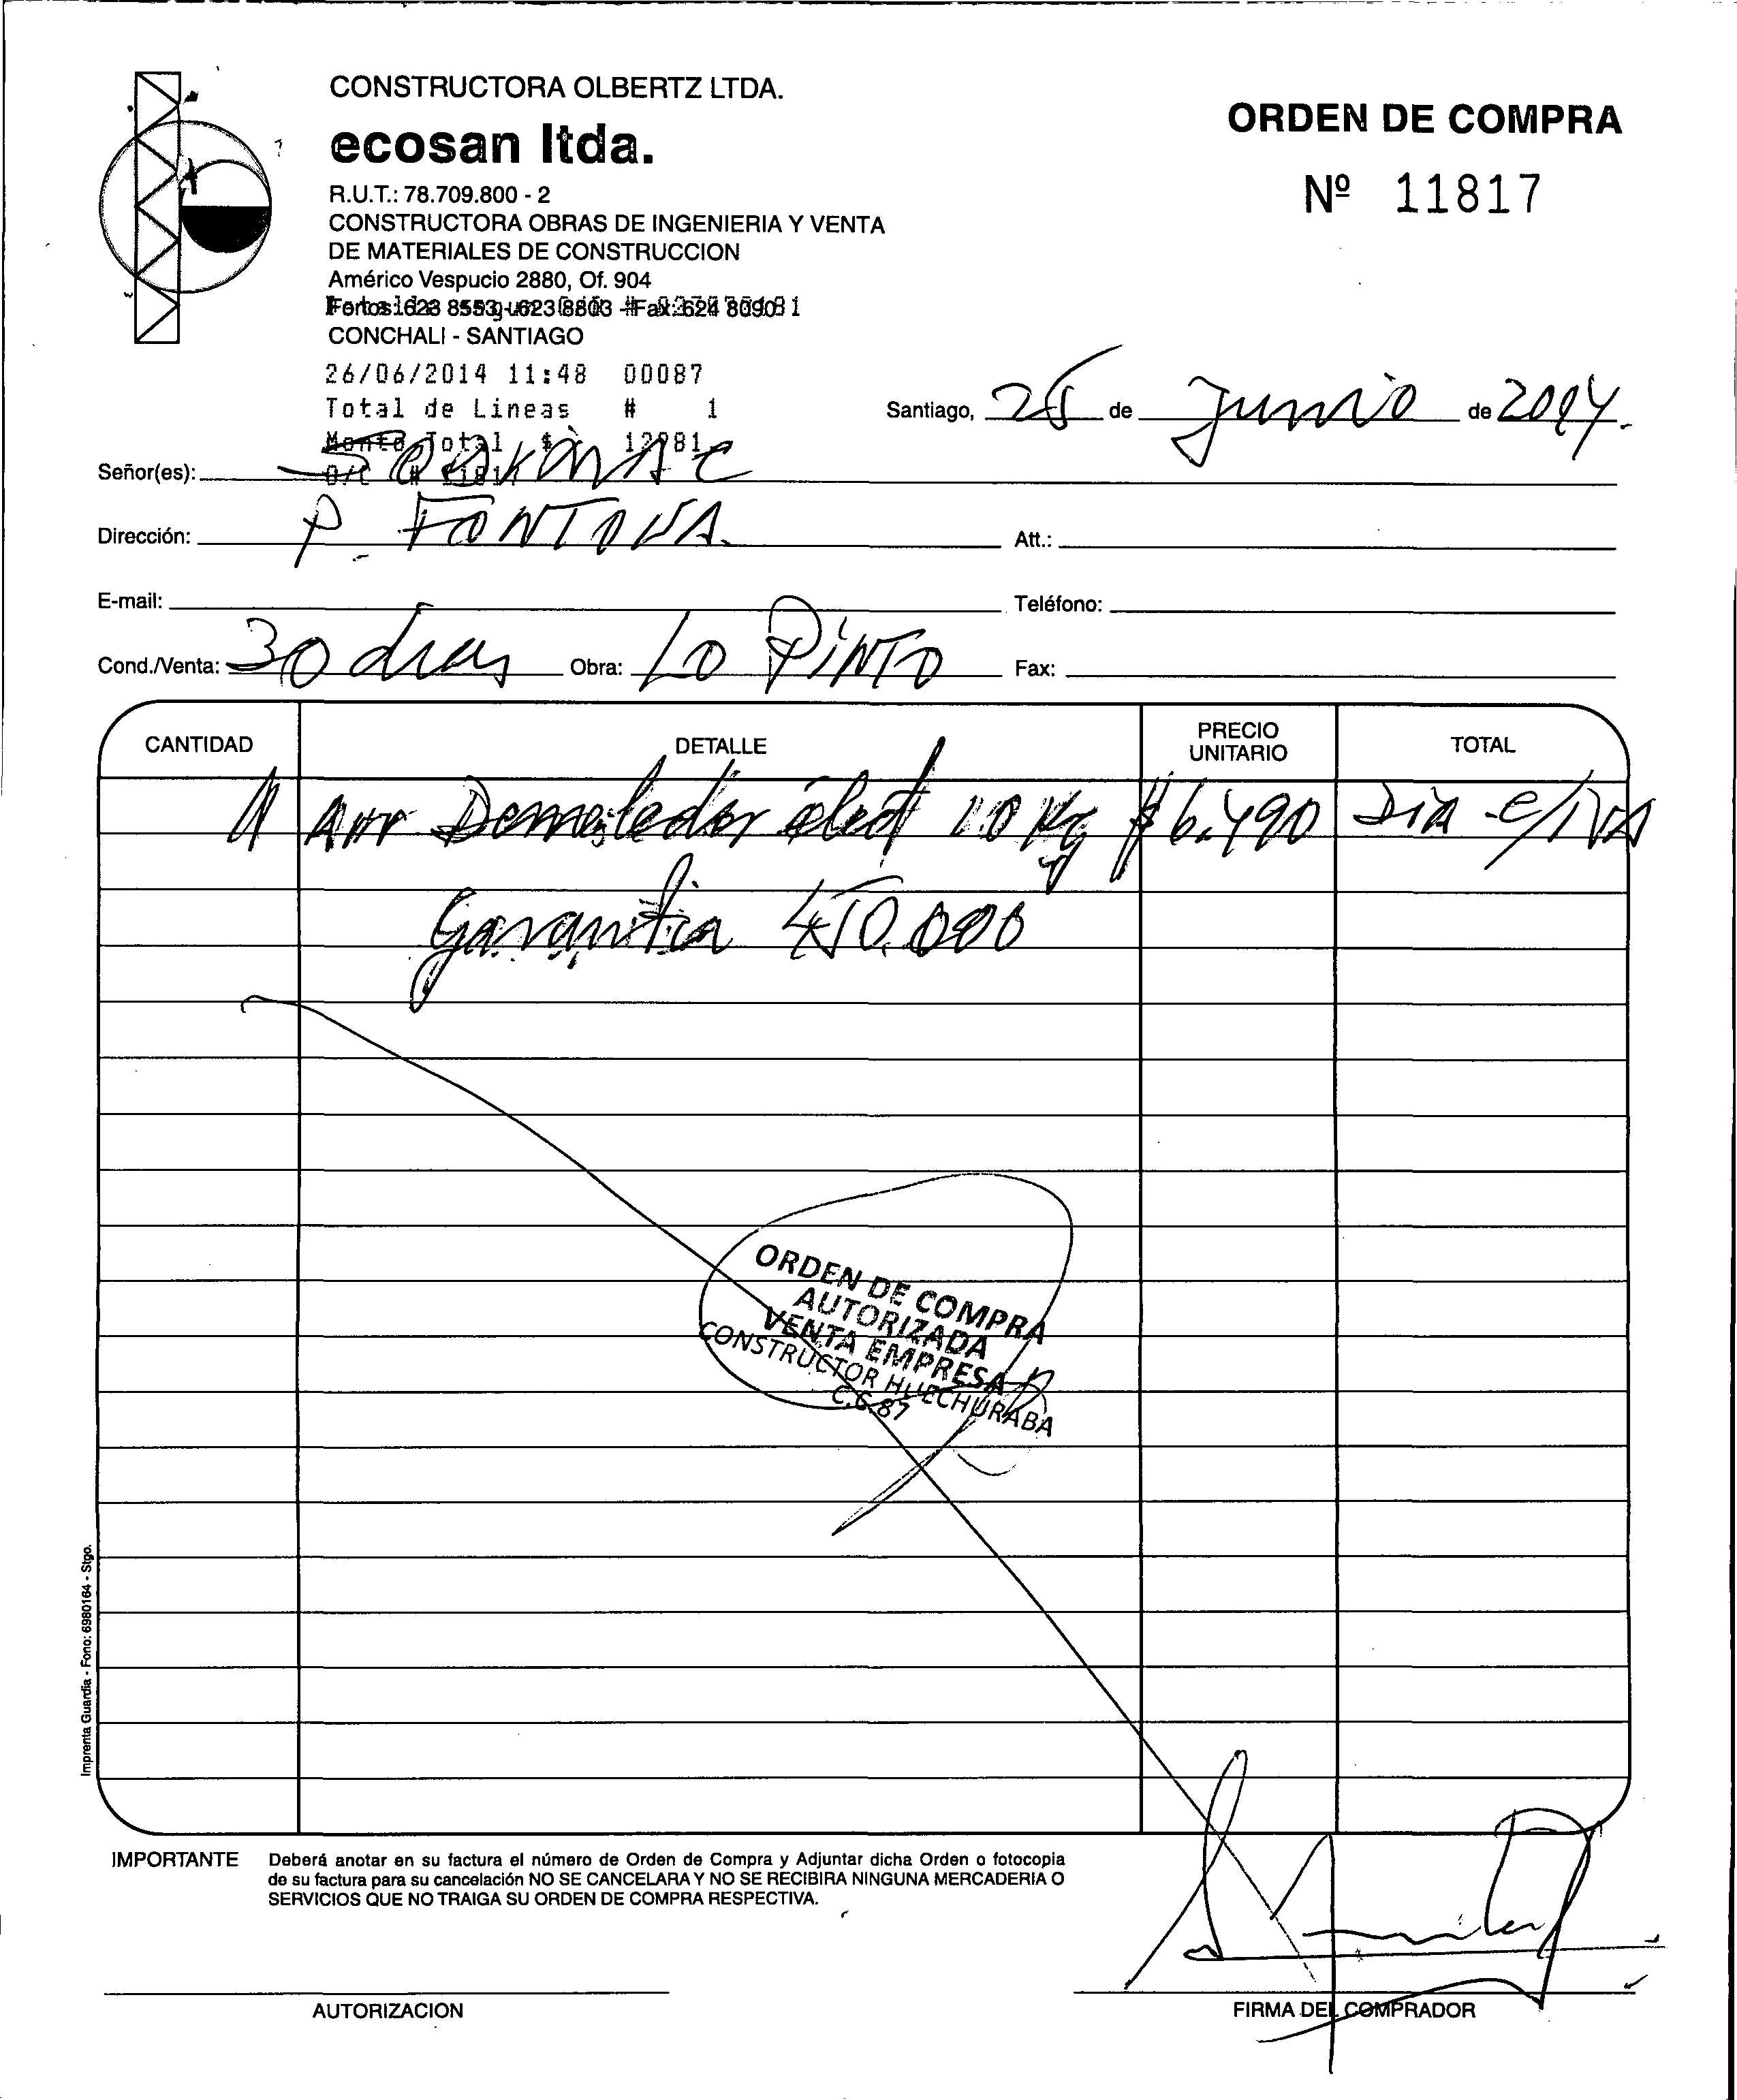 CONSTRUCTORA OLBERTZ LTDA.
ecosan ltda.
R.U.T.: 78.709.800 - 2
CONSTRUCTORA OBRAS DE INGENIERIA Y VENTA
DE MATERIALES DE CONSTRUCCION
Américo Vespucio 2880, Of. 904
Fonos: 623 8553 - 623 8803 - Fax: 624 8090
CONCHALI - SANTIAGO
ORDEN DE COMPRA
Nº 11817
26/06/2014 11:48 00087
Total de Lineas # 1
Monto Total $ 12981
O/C #
Santiago, 26 de Junio de 2014.
Señor(es): SODIMAC
Dirección: P. FONTOVA. Att.:
E-mail: Teléfono:
Cond./Venta: 30 dias Obra: LO PINTO Fax:
CANTIDAD DETALLE PRECIO UNITARIO TOTAL
1 Arr Demoledor elect 10 Kg $6.490 Dia c/IVA
Garantia 450.000
ORDEN DE COMPRA
AUTORIZADA
VENTA EMPRESA
CONSTRUCTOR HUECHURABA
C.C.87
Imprenta Guardia - Fono: 6980164 - Stgo.
IMPORTANTE Deberá anotar en su factura el número de Orden de Compra y Adjuntar dicha Orden o fotocopia
de su factura para su cancelación NO SE CANCELARA Y NO SE RECIBIRA NINGUNA MERCADERIA O
SERVICIOS QUE NO TRAIGA SU ORDEN DE COMPRA RESPECTIVA.
AUTORIZACION
FIRMA DEL COMPRADOR